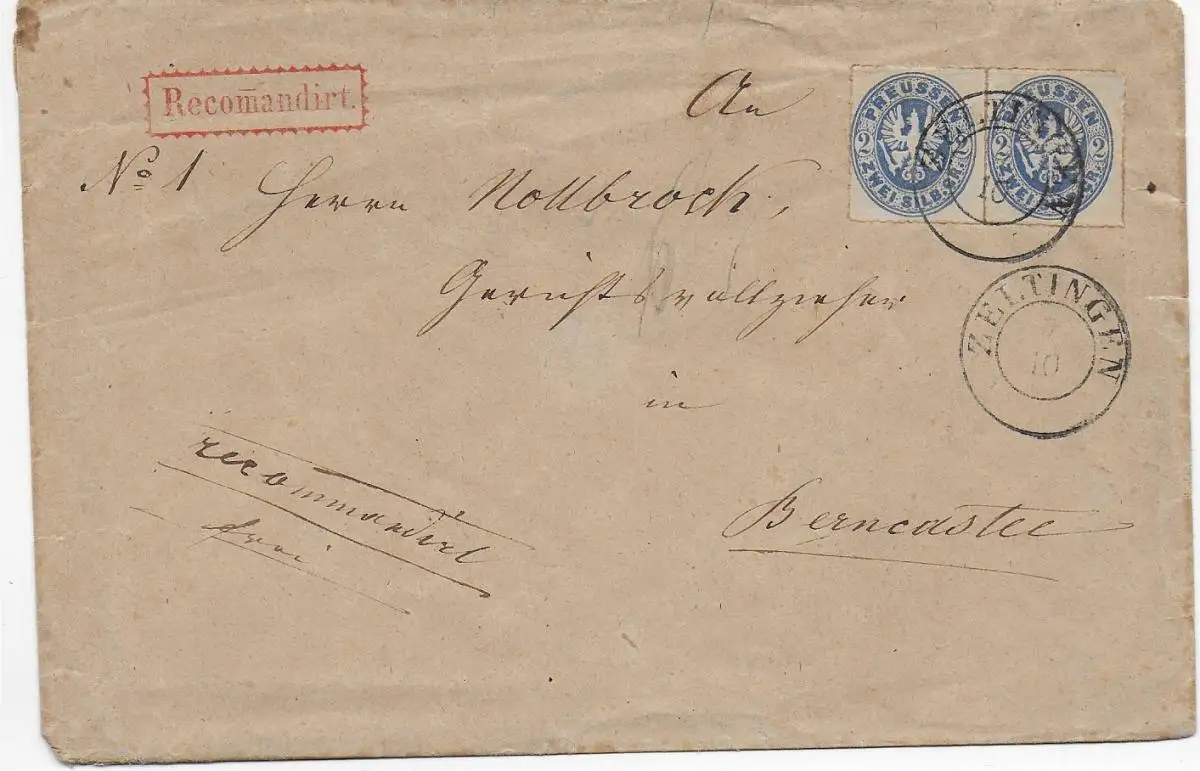 Recom̄andirt.
An
PREUSSEN
2 2
ZWEI SILB. GR.
PREUSSEN
2 2
ZWEI
10
No 1 Herrn Nollbroch,
Gerichtsvollzieher
ZELTINGEN
10
in
recommandirt
frei
Berncastel